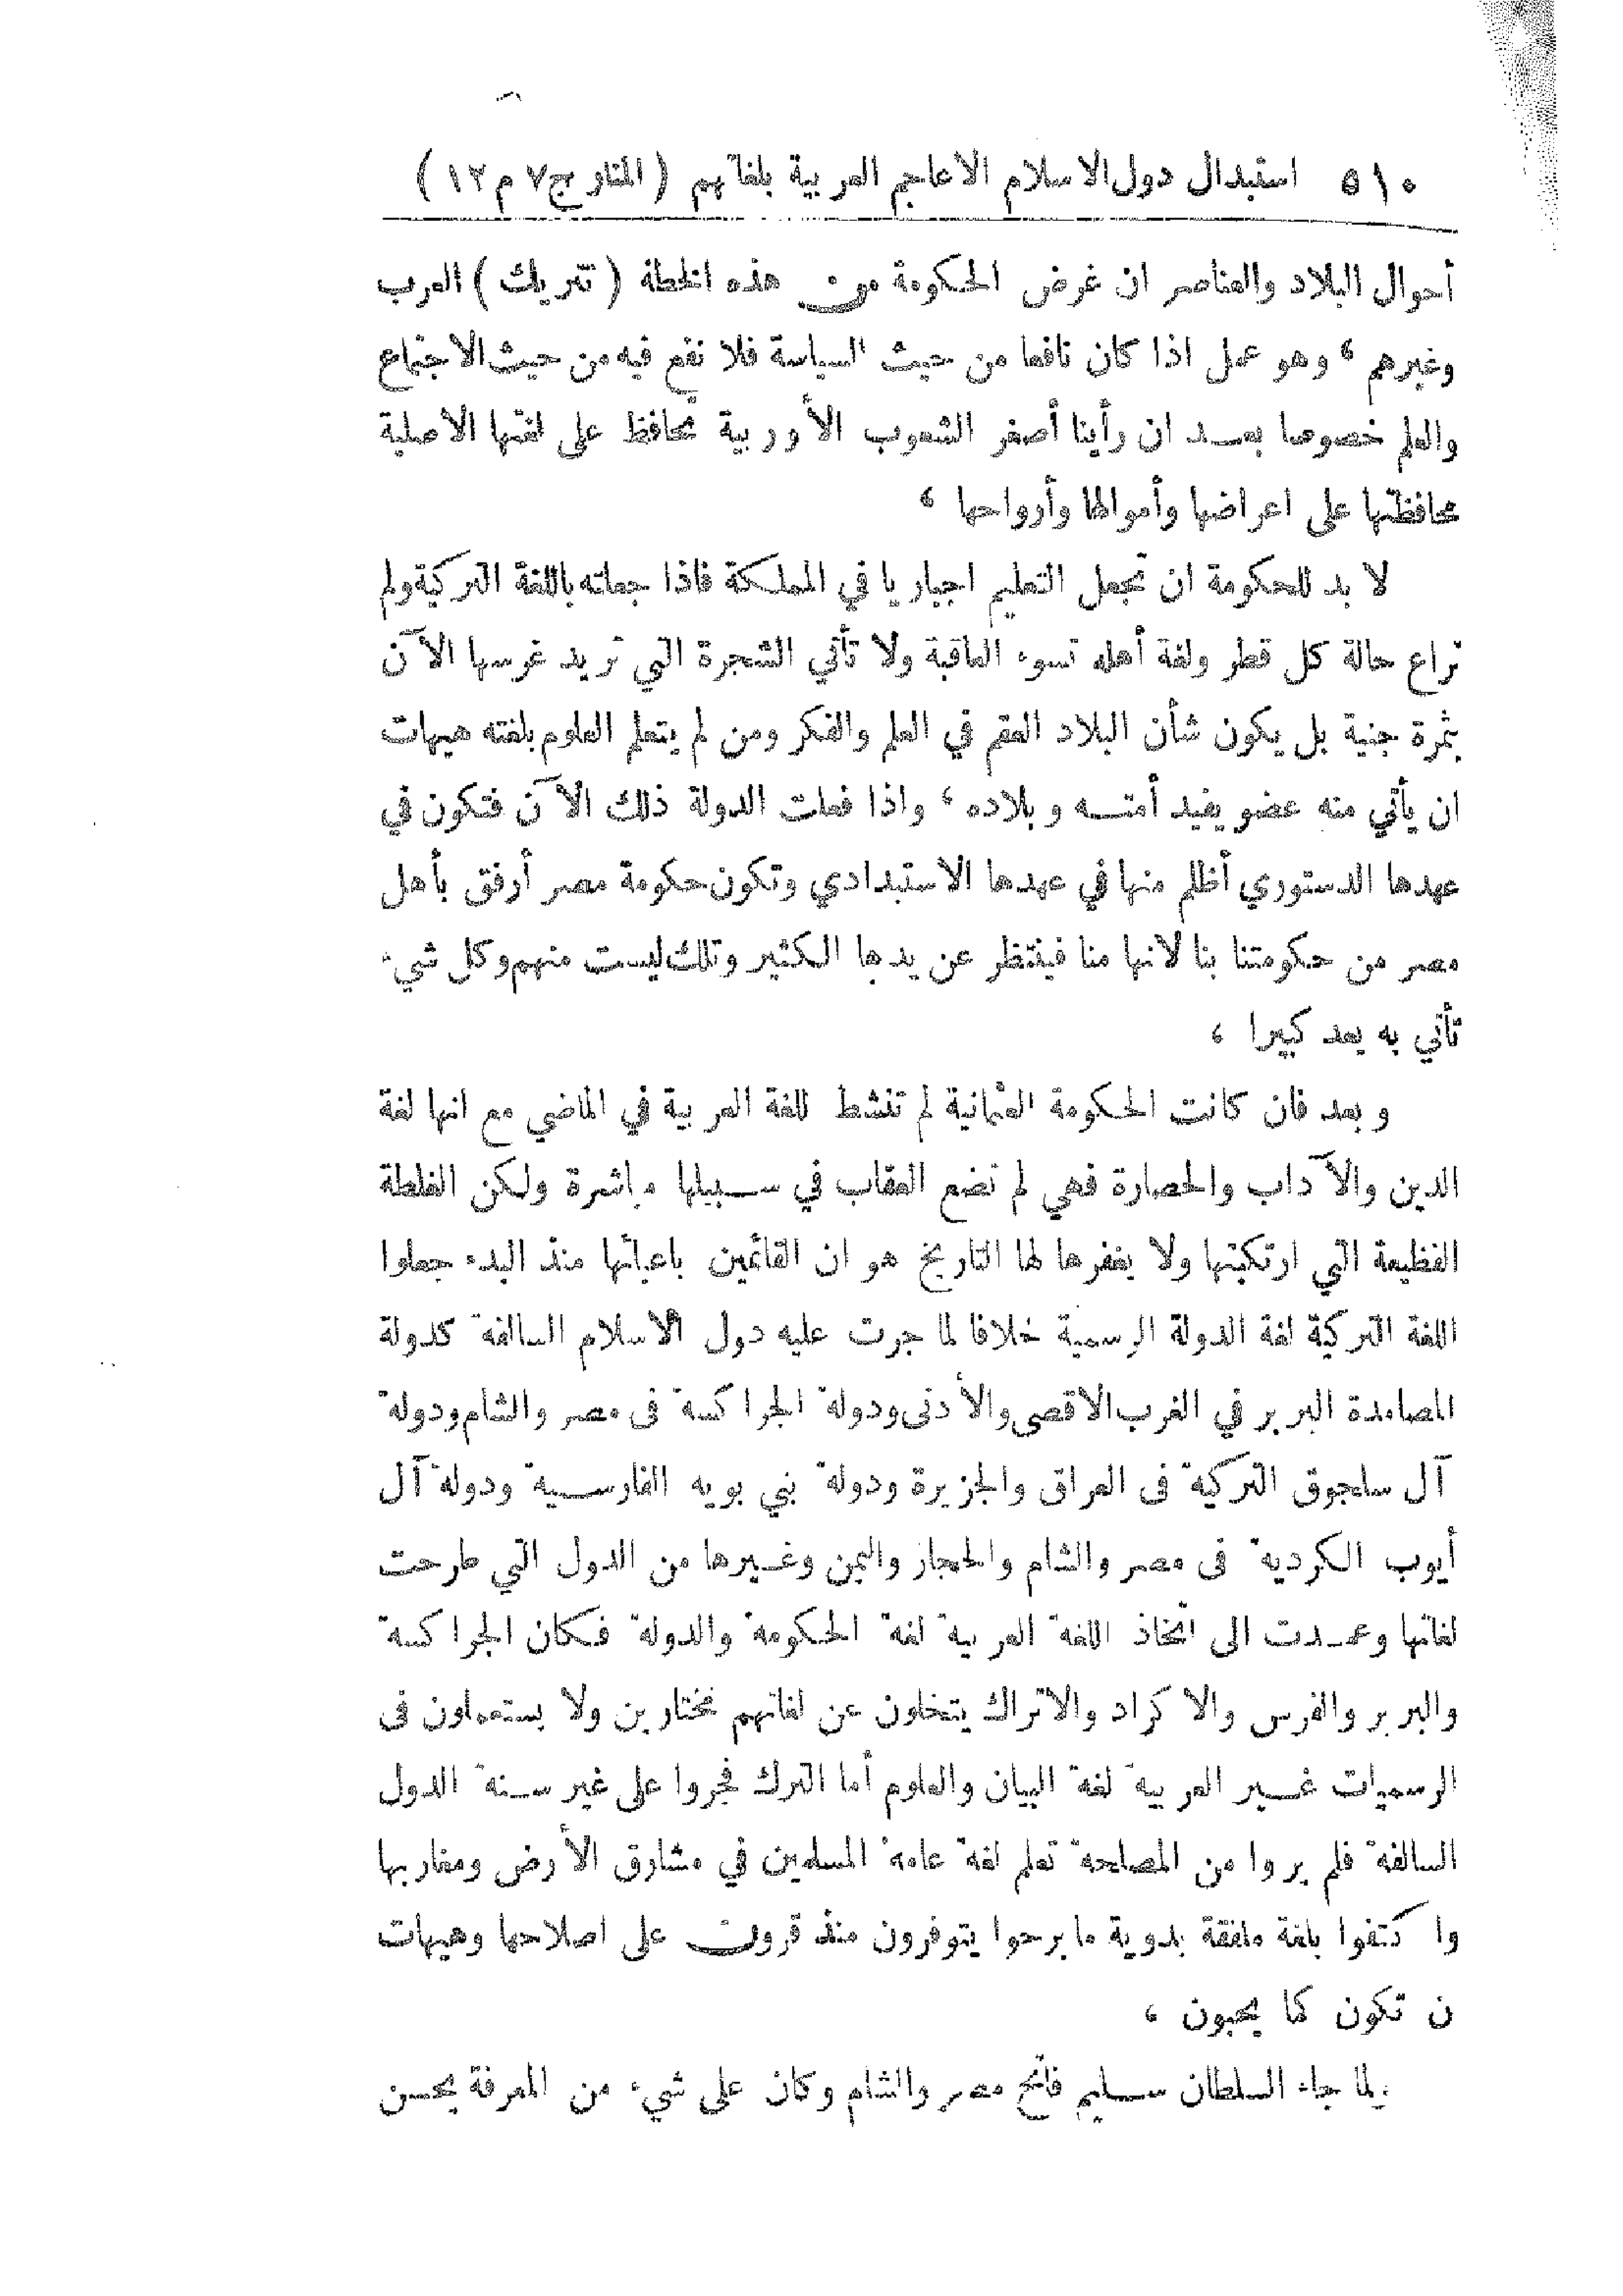 ٥١٠ استبدال دول الاسلام الاعاجم العربية بلغاتهم (المنار ج٧ م١٢)
أحوال البلاد والعناصر ان غرض الحكومة من هذه الخطة (تتريك) العرب
وغيرهم ، وهو عمل اذا كان نافعا من حيث السياسة فلا نفع فيه من حيث الاجتماع
والعلم خصوصا بعد ان رأينا أصغر الشعوب الأوربية تحافظ على لغتها الاصلية
محافظتها على اعراضها وأموالها وأرواحها ،
لا بد للحكومة ان تجعل التعليم اجباريا في المملكة فاذا جعلته باللغة التركية ولم
تراع حالة كل قطر ولغة أهله تسوء العاقبة ولا تأتي الشجرة التي تريد غرسها الآن
بثمرة جنية بل يكون شأن البلاد العقم في العلم والفكر ومن لم يتعلم العلوم بلغته هيهات
ان يأتي منه عضو يفيد أمته وبلاده ، واذا فعلت الدولة ذلك الآن فتكون في
عهدها الدستوري أظلم منها في عهدها الاستبدادي وتكون حكومة مصر أرفق بأهل
مصر من حكومتنا بنا لانها منا فينتظر عن يدها الكثير وتلك ليست منهم وكل شيء
تأتي به يعد كبيرا ،
وبعد فان كانت الحكومة العثمانية لم تنشط للغة العربية في الماضي مع انها لغة
الدين والآداب والحضارة فهي لم تضع العقاب في سبيلها مباشرة ولكن الغلطة
الفظيعة التي ارتكبتها ولا يغفرها لها التاريخ هو ان القائمين باعبائها منذ البدء جعلوا
اللغة التركية لغة الدولة الرسمية خلافا لما جرت عليه دول الاسلام السالفة كدولة
المصامدة البربر في الغرب الاقصى والأدنى ودولة الجراكسة فى مصر والشام ودولة
آل سلجوق التركية فى العراق والجزيرة ودولة بني بويه الفارسية ودولة آل
أيوب الكردية فى مصر والشام والحجاز واليمن وغيرها من الدول التي طرحت
لغاتها وعمدت الى اتخاذ اللغة العربية لغة الحكومة والدولة فكان الجراكسة
والبربر والفرس والاكراد والاتراك يتخلون عن لغاتهم مختارين ولا يستعملون فى
الرسميات غير العربية لغة البيان والعلوم أما الترك فجروا على غير سنة الدول
السالفة فلم يروا من المصلحة تعلم لغة عامة المسلمين في مشارق الأرض ومغاربها
واكتفوا بلغة ملفقة بدوية ما برحوا يتوفرون منذ قرون على اصلاحها وهيهات
ن تكون كما يحبون ،
ولما جاء السلطان سليم فاتح مصر والشام وكان على شيء من المعرفة يحسن